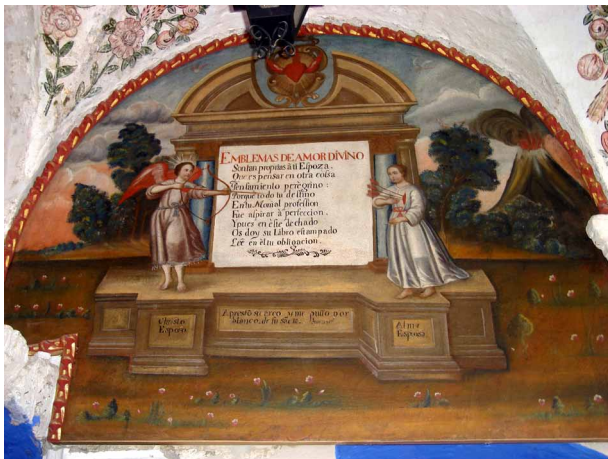 EMBLEMAS DE AMOR DIVINO
Son tan propias à ti Espoza.
Que es pensar en otra coisa
Pensamiento peregrino:
Porque todo tu destino
En tu Monial profession
Fue aspirar à perfeccion.
Y pues en este dechado
Os doy su Libro estampado
Lee en èl tu obligacion.
Christo
Esposo
puso por
blanco de su
Alma
Esposa